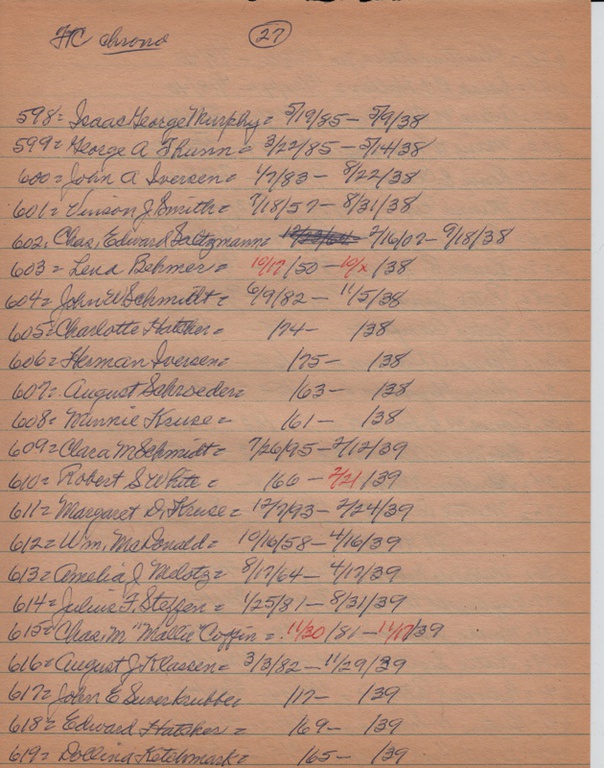 FC chrono 27
598 = Isaac George Murphy = 5/19/85 - 5/9/38
599 = George A Thunn = 3/22/85 - 5/14/38
600 = John A Iversen = 1/7/83 - 8/22/38
601 = Vinson J Smith = 7/18/57 - 8/31/38
602. Chas. Edward Saltzmann = 2/16/07 - 9/18/38
603 = Lena Behmer = 10/17/50 - 10/x/38
604 = John W Schmidt = 6/9/82 - 11/5/38
605 = Charlotte Hatcher = /74 - /38
606 = Herman Iversen = /75 - /38
607 = August Schroeder = /63 - /38
608 = Minnie Kruse = /61 - /38
609 = Clara M Schmidt = 7/26/95 - 2/12/39
610 = Robert S White = /66 - 2/21/39
611 = Margaret D. Kruse = 12/7/93 - 2/24/39
612 = Wm. McDonald = 10/16/58 - 4/16/39
613 = Amelia J Melotz = 8/17/64 - 4/17/39
614 = Julius F. Steffen = 1/25/81 - 8/31/39
615 = Chas. M "Mallie" Coffin = 11/30/81 - 11/17/39
616 = August J Klassen = 3/3/82 - 11/29/39
617 = John E Suverkrubbe /17 - /39
618 = Edward Hatcher = /69 - /39
619 = Dollina Ketchmark = /65 - /39